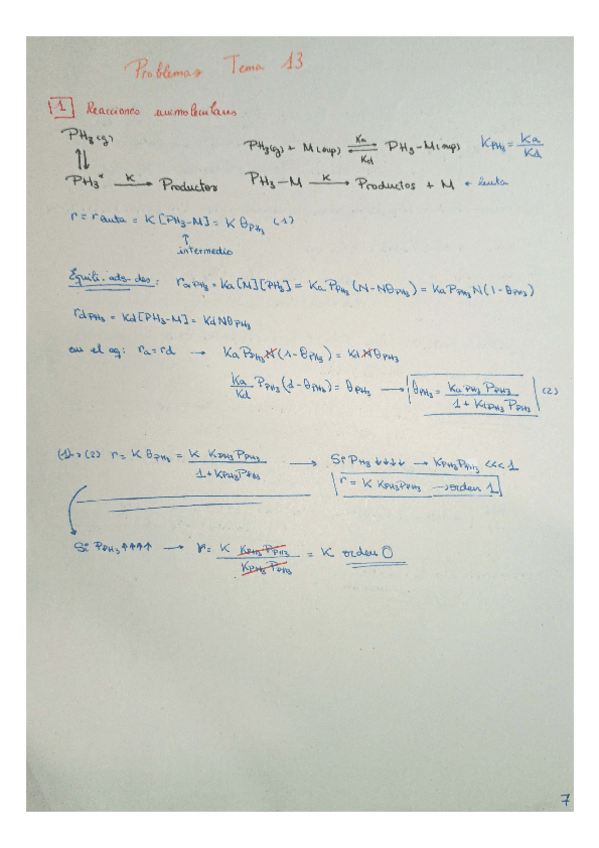 Problemas Tema 13
1 Reacciones unimoleculares
PH3(g)
⇅
PH3* —K→ Productos
PH3(g) + M(sup) ⇌ (Ka / Kd) PH3-M(sup) K_PH3 = Ka/Kd
PH3-M —K→ Productos + M ← lenta
r = r lenta = K [PH3-M] = K θ_PH3 (1)
↑
intermedio
Equili. ads-des: r_a PH3 = Ka [M][PH3] = Ka P_PH3 (N-Nθ_PH3) = Ka P_PH3 N(1-θ_PH3)
r_d PH3 = Kd [PH3-M] = Kd Nθ_PH3
en el eq: ra = rd → Ka P_PH3 N (1-θ_PH3) = Kd N θ_PH3
Ka/Kd P_PH3 (1-θ_PH3) = θ_PH3 → θ_PH3 = K_PH3 P_PH3 / 1 + K_PH3 P_PH3 (2)
(1)→(2) r = K θ_PH3 = K K_PH3 P_PH3 / 1 + K_PH3 P_PH3 → Si PH3 ↓↓↓↓ → K_PH3 P_PH3 <<< 1
r = K K_PH3 P_PH3 → orden 1
Si P_PH3 ↑↑↑↑ → r = K K_PH3 P_PH3 / K_PH3 P_PH3 = K orden 0
7